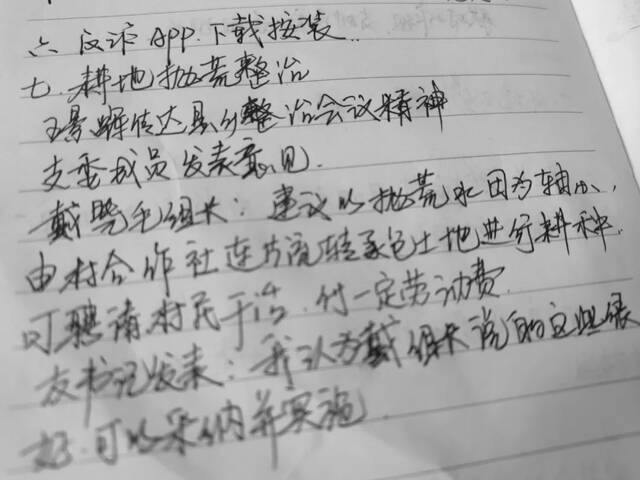 六、反诈APP下载按装
七.耕地抛荒整治
王景辉传达县、乡整治会议精神
支委成员发表意见.
戴 毛组长：建议以抛荒水田为轴心,
由村合作社连片流转承包土地进行耕种.
可聘请村民干活.付一定劳动费.
友书记发表：我认为戴组长说的这些很
好.可以采纳并实施.